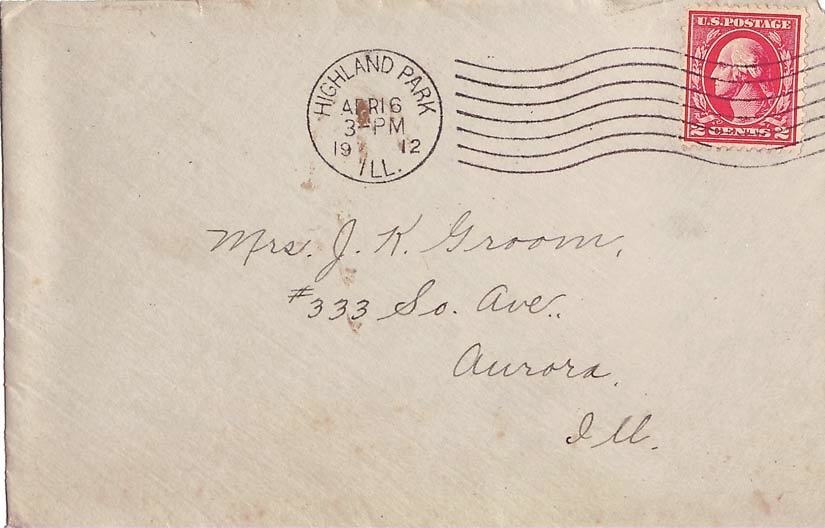 U.S. POSTAGE
2 CENTS 2
HIGHLAND PARK
APR 16
3-PM
19 12
ILL.
Mrs. J. K. Groom,
#333 So. Ave.,
Aurora,
Ill.